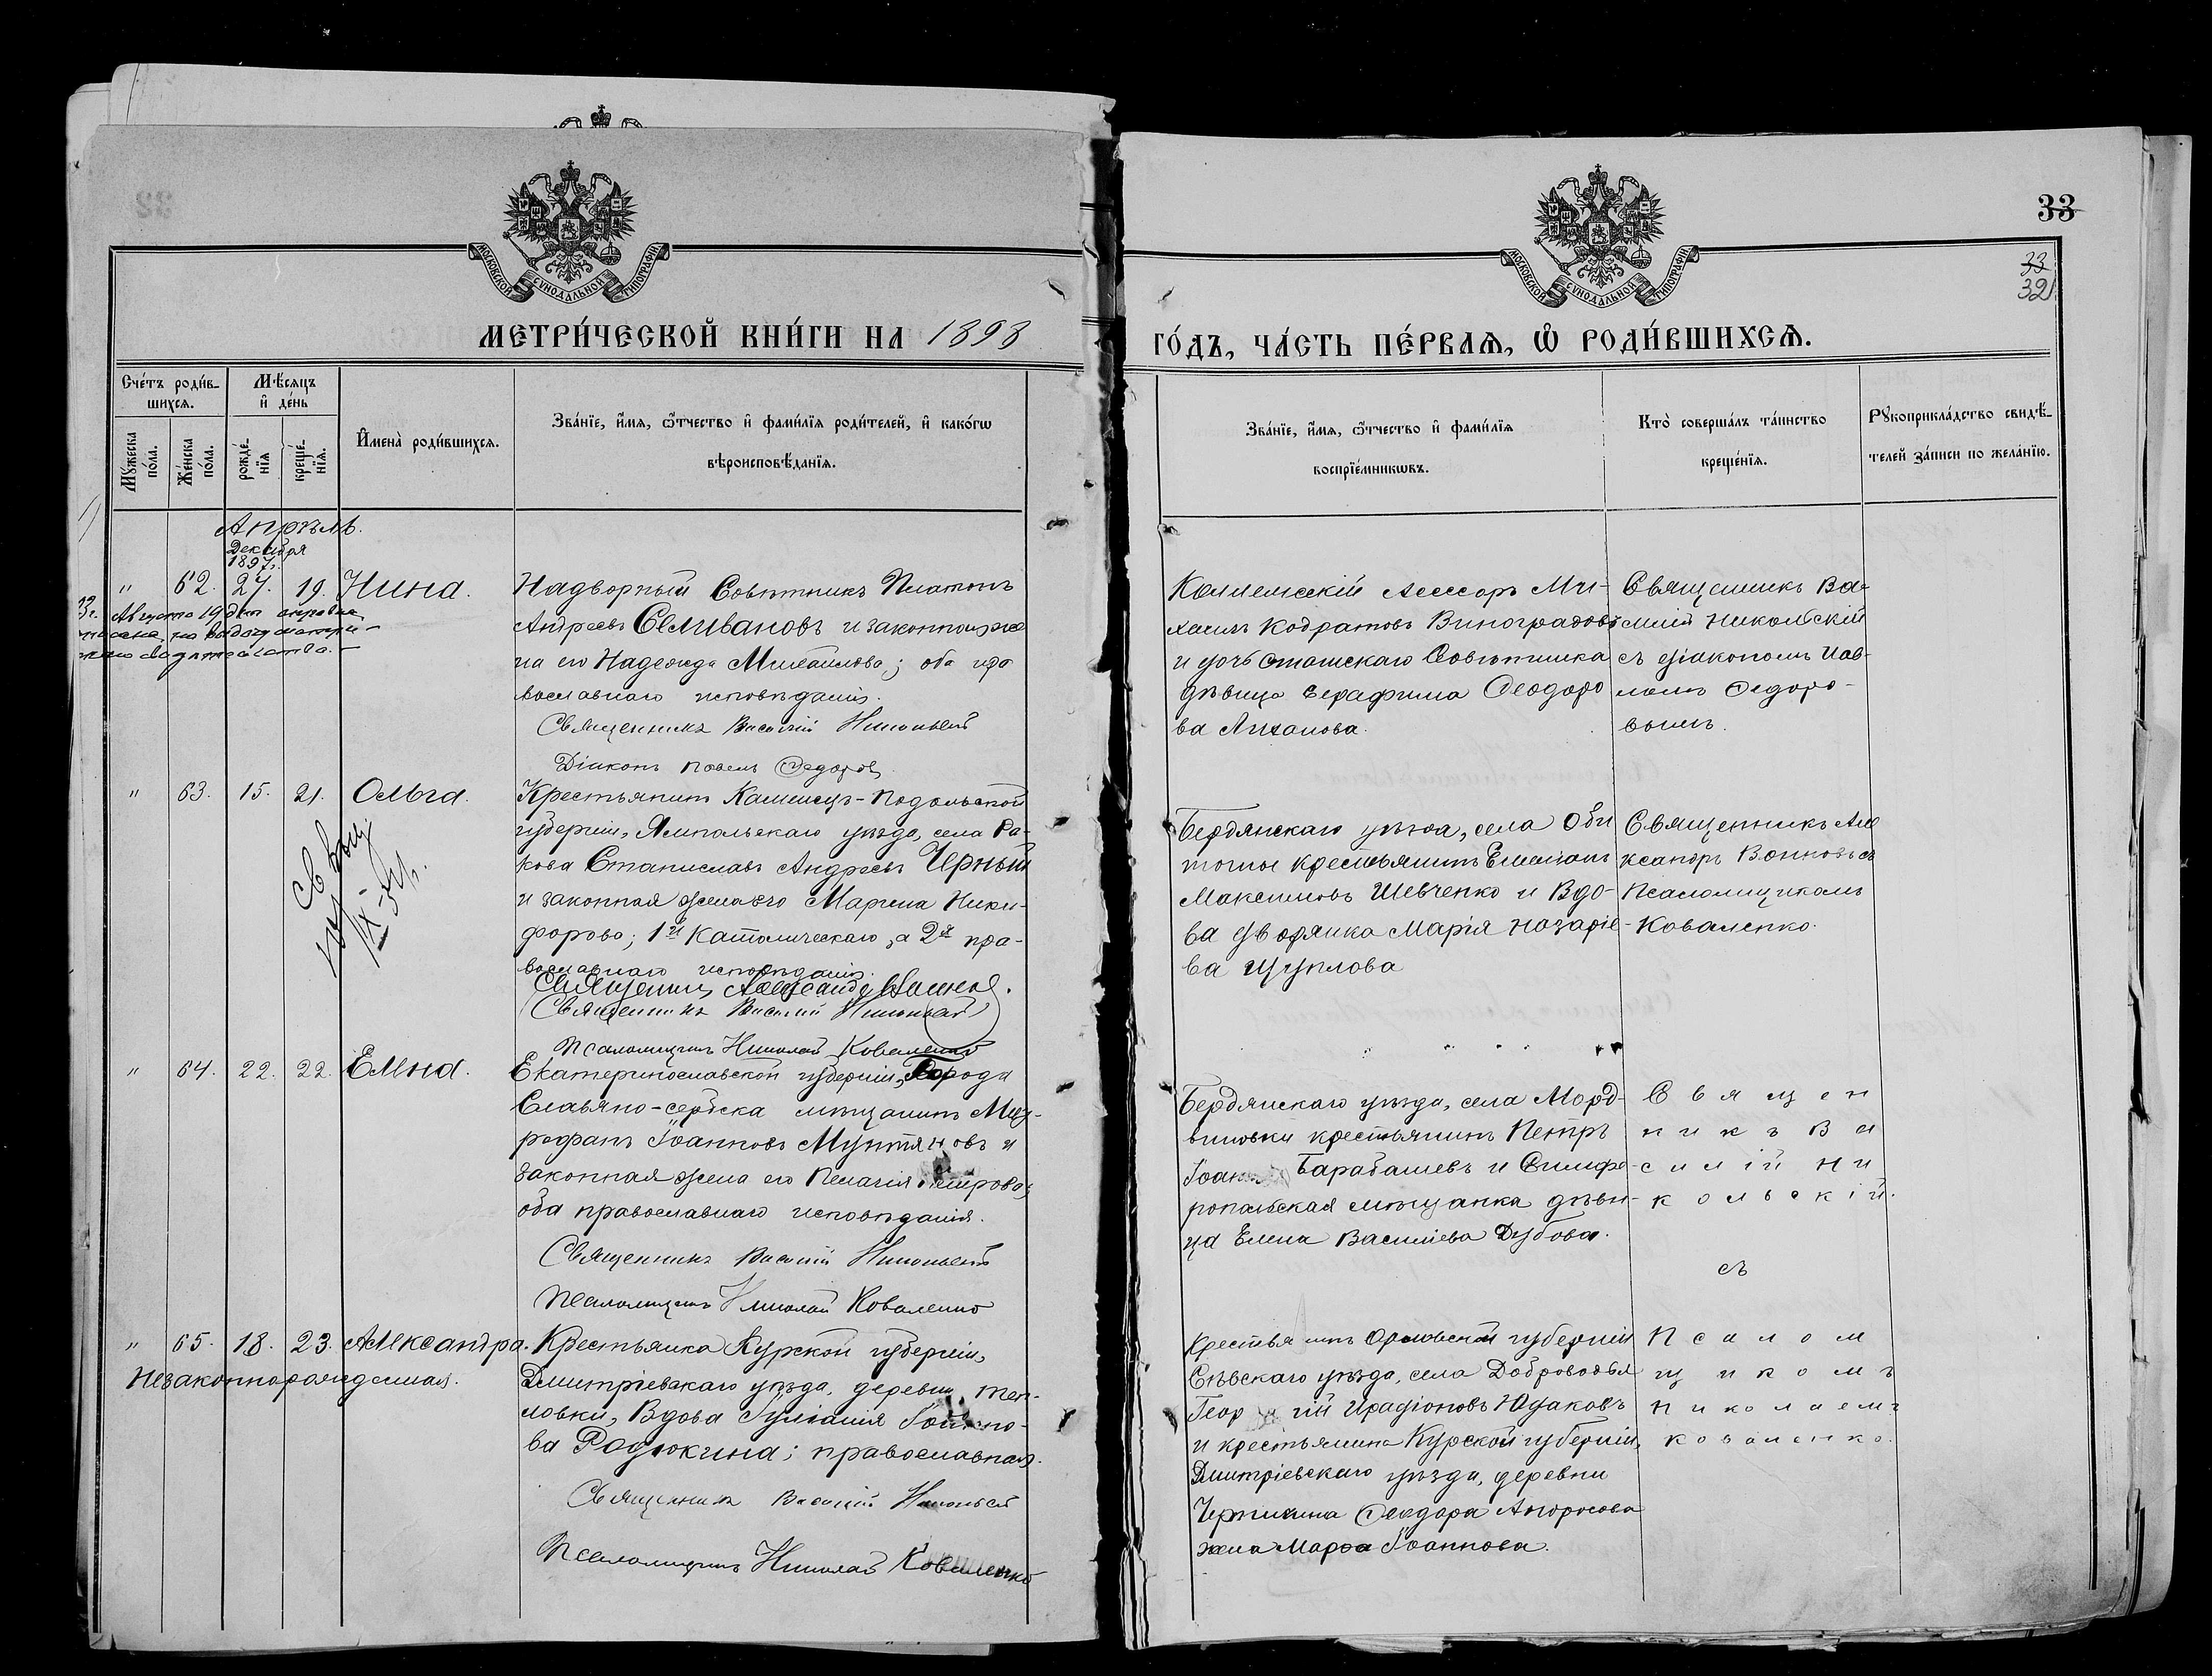 МОСКОВСКОЙ СѴНОДАЛЬНОЙ ТИПОГРАФІИ
МЕТРИ́ЧЕСКОЙ КНИ́ГИ НА 1898
Сче́тъ роди́в-
шихсѧ.
Мѣ́сѧцъ
и҆ де́нь
Мꙋ́жеска по́ла.
Же́нска по́ла.
рожде́-
нїѧ
креще́-
нїѧ.
И҆мена̀ роди́вшихсѧ.
Зва́нїе, и҆́мѧ, ѻ҆́тчество и҆ фами́лїѧ роди́телей, и҆ како́гѡ
вѣроисповѣ́данїѧ.
Апрѣль.
Декабря
1897 г.
" 62. 27. 19. Нина.
Августа 19 дня
Надворный Совѣтникъ Платонъ
Андреевъ Селивановъ и законная же
на его Надежда Михаилова; оба пра
вославнаго исповѣданія.
Священникъ Василій Никольскій
Діаконъ Павелъ Федоровъ
" 63. 15. 21. Ольга.
Крестьянинъ Каменецъ-Подольской
губерніи, Ямпольскаго уѣзда, села Ра-
кова Станиславъ Андреевъ Черный
и законная жена его Марина Ники-
форова; 1й Католическаго, а 2я пра-
вославнаго исповѣданія.
Священникъ Александръ
Священникъ Василій Никольскій
Псаломщикъ Николай Коваленко
" 64. 22. 22. Елена.
Екатеринославской губерніи, Города
Славяно-сербска мѣщанинъ Мит-
рофанъ Іоанновъ Мунтяновъ и
законная жена его Пелагія Петрова;
оба православнаго исповѣданія.
Священникъ Василій Никольскій
Псаломщикъ Николай Коваленко
" 65. 18. 23. Александра.
Незаконнорожденная.
Крестьянка Курской губерніи,
Дмитріевскаго уѣзда, деревни Теп-
ловки, Вдова Іуліанія Іоанно-
ва Родюкина; православная.
Священникъ Василій Никольскій
Псаломщикъ Николай Коваленко
33
33
32
МОСКОВСКОЙ СѴНОДАЛЬНОЙ ТИПОГРАФІИ
ГО́ДЪ, ЧА́СТЬ ПЕ́РВАѦ, Ѡ҆ РОДИ́ВШИХСѦ.
Зва́нїе, и҆́мѧ, ѻ҆́тчество и҆ фами́лїѧ
воспрїе́мникѡвъ.
Кто̀ соверша́лъ та́инство
креще́нїѧ.
Рꙋкоприкла́дство свидѣ́-
телей за́писи по жела́нїю.
Коллежскій Ассесоръ Ми-
хаилъ Кодратовъ Виноградовъ
и дочь Статскаго Совѣтника
дѣвица Серафима Феодоро
ва
Священникъ Ва-
силій Никольскій
съ діакономъ Пав-
ломъ Федоро-
вымъ.
Бердянскаго уѣзда, села Оби
точное крестьянинъ Емеліанъ
Максимовъ Шевченко и Вдо-
ва дворянка Марія Назаріе-
ва Щуплова
Священникъ Але
ксандръ съ
Псаломщикомъ
Коваленко.
Бердянскаго уѣзда, села Морд-
виновки крестьянинъ Петръ
Іоанн Барабашевъ и Симфе-
ропольская мѣщанка дѣви-
ца Елена Василіева Дубова.
Священ
никъ Ва
силій Ни
кольскій.
съ
Крестьянинъ Орловской губерніи
Сѣвскаго уѣзда, села Доброводья
Георгій Иродіоновъ Юдаковъ
и крестьянина Курской губерніи,
Дмитріевскаго уѣзда, деревни
Феодора
жена Марѳа Іоаннова.
Псалом
щикомъ
Николаемъ
Коваленко.